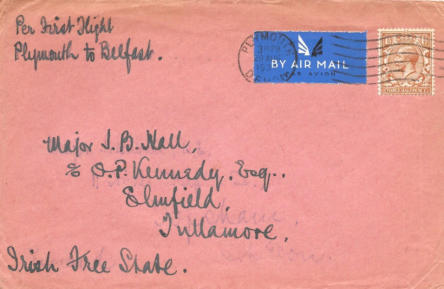 Per First Flight
Plymouth to Belfast.
BY AIR MAIL
PAR AVION
PLYMOUTH
DEVON
Major J. B. Hall,
℅ J. P. Kennedy, Esq.,
Elmfield,
Tullamore,
Irish Free State.